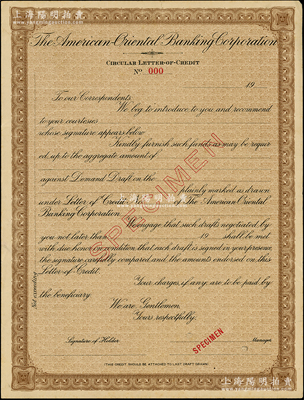 上海陽明拍賣
The American-Oriental Banking Corporation
CIRCULAR LETTER-OF-CREDIT
No 000
19
To our Correspondents
We beg to introduce to you and recommend
to your courtesies
whose signature appears below
Kindly furnish such funds as may be requir
ed, up to the aggregate amount of
against Demand Draft on the
plainly marked as drawn
under Letter of Credit No. The American-Oriental
Banking Corporation
We engage that such drafts negotiated by
you not later than 19 shall be met
with due honor on condition that each draft is signed in your presence
the signature carefully compared and the amounts endorsed on this
Letter-of-Credit.
Your charges, if any, are to be paid by
the beneficiary
We are Gentlemen,
Yours respectfully,
SPECIMEN
SPECIMEN
Signature of Holder
Manager
(THIS CREDIT SHOULD BE ATTACHED TO LAST DRAFT DRAWN)
上海陽明拍賣